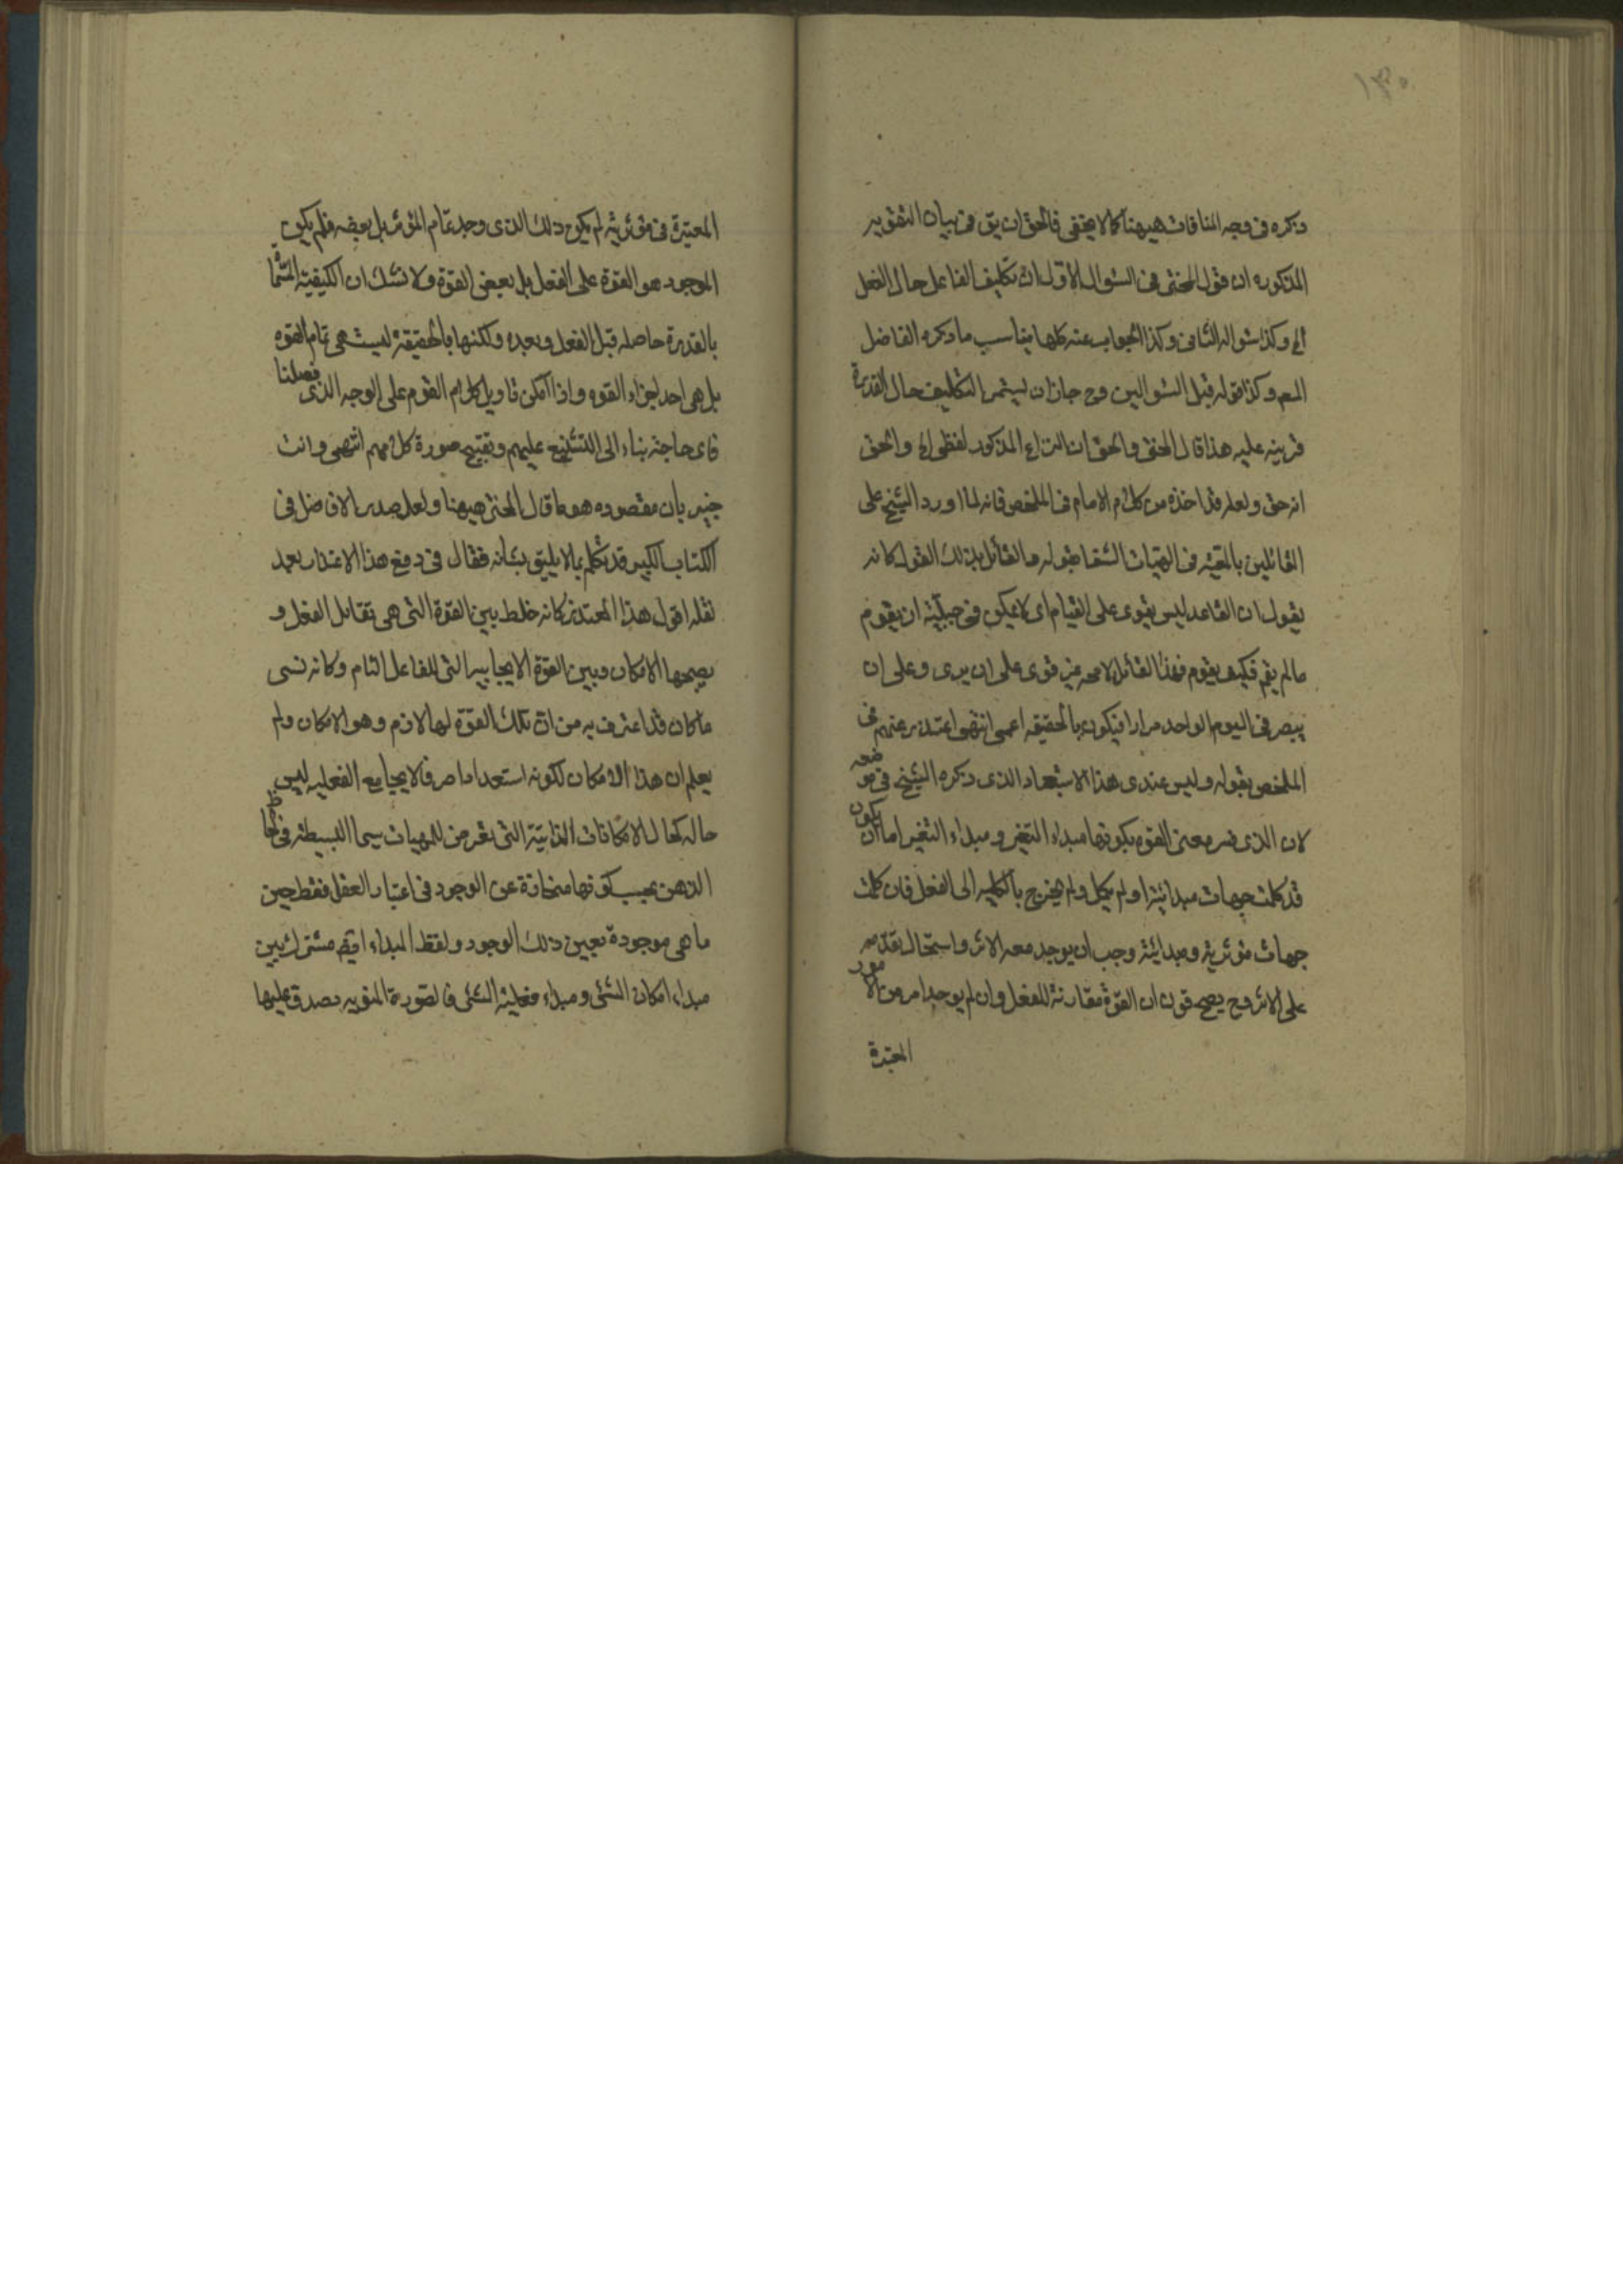 ١٣٠
ذكره فى وجه المنافات هيهنا كما لا يخفى فالحق ان يق فى بيان التقوير
المذكوره ان قول المحشى فى السؤال الاول ان تكليف الفاعل حال الفعل
الخ وكذا سؤاله الثانى وكذا الجواب عنه كلها يناسب ما ذكره الفاضل
المعم وكذا قوله قبل السؤالين وح جاز ان يستمر التكليف حال القدرة
قرينه عليه هذا قال المحشى والحق ان النزاع المذكور لفظى الخ والحق
انه حق ولعله قد اخذه من كلام الامام فى الملخص فانه لما اورد الشيخ على
القائلين بالمعية فى الهيات الشفا بقوله والقائل بذلك القول كانه
يقول ان القاعد ليس يقوى على القيام اى لا يمكن فى جبلته ان يقوم
ما لم يقم فكيف يقوم فهذا القائل لا محه غير قوى على ان يرى وعلى ان
يبصر فى اليوم الواحد مرارا فيكون بالحقيقه اعمى انتهى اعتذر عنهم فى
الملخص بقوله وليس عندى هذا الاستبعاد الذى ذكره الشيخ فى موضعه
لان الذى فسر معنى القوه بكونها مبداء التغير ومبداء التغير اما ان يكون
قد كملت جهات مبدائيته او لم يكمل ولم يخرج بالكليه الى الفعل فان كملت
جهات مؤثريته ومبدائيته وجب ان يوجد معه الاثر واستحال تقدمه
على الاثر وح يصح قول ان القوة مقارنة للفعل وان لم يوجد امر من الامور
المعتبرة
المعتبرة فى مؤثريته لم يكن ذلك الذى وجد تمام المؤثر بل بعضه فلم يكن
الموجود هو القوة على الفعل بل بعض القوة ولا نشك ان الكيفية المسماة
بالقدرة حاصله قبل الفعل وبعده ولكنها بالحقيقة ليست هى تمام القوه
بل هى احد اجزاء القوه واذا امكن تاويل كلام القوم على الوجه الذى فصلنا
فاى حاجة بناء الى التشنيع عليهم وتقبيح صورة كلامهم انتهى وانت
خبير بان مقصوده هو ما قال المحشى هيهنا ولعل صدر الافاضل فى
الكتاب الكبير قد تكلم بما لا يليق بشانه فقال فى دفع هذا الاعتذار بعد
نقله اقول هذا المعتذر كانه خلط بين القوة التى هى تقابل الفعل و
يصحبها الامكان وبين القوة الايجابيه التى للفاعل التام وكانه نسى
ما كان قد اعترف به من ان تلك القوة لها لازم وهو الامكان ولم
يعلم ان هذا الامكان لكونه استعدادا صرفا لا يجامع الفعليه ليس
حاله كحال الامكانات الذاتية التى تعرض للمهيات سيما البسيطه فى لحاظ
الذهن بحسب كونها منحازة عن الوجود فى اعتبار العقل فقط حين
ما هى موجودة بعين ذلك الوجود ولفظ المبداء ايضا مشترك بين
مبداء امكان الشئ ومبداء فعلية الشئ فالصورة المنويه يصدق عليها